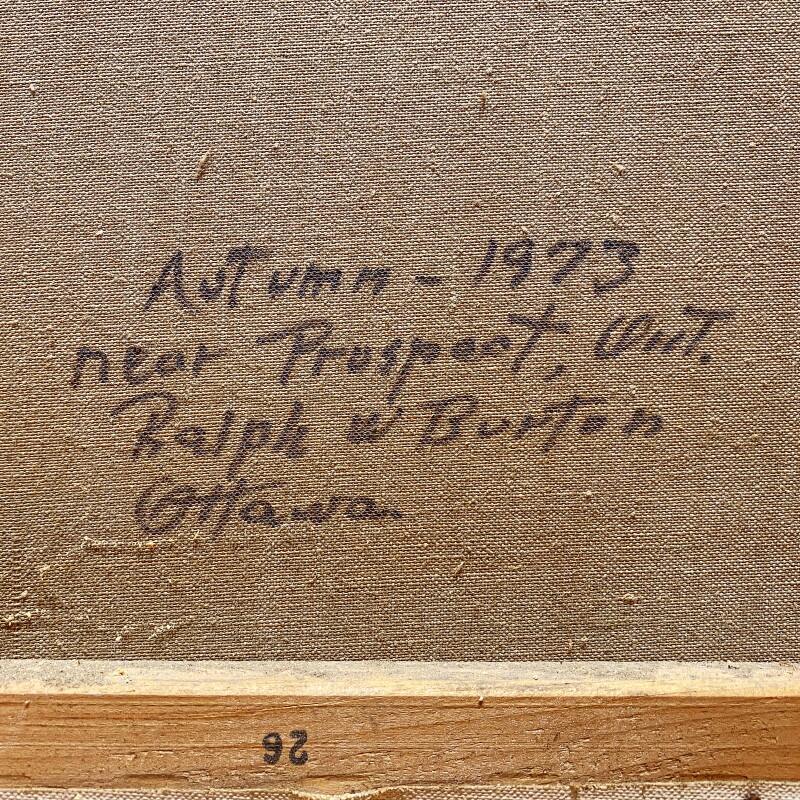 Autumn - 1973
near Prospect, Ont.
Ralph W Burton
Ottawa
26